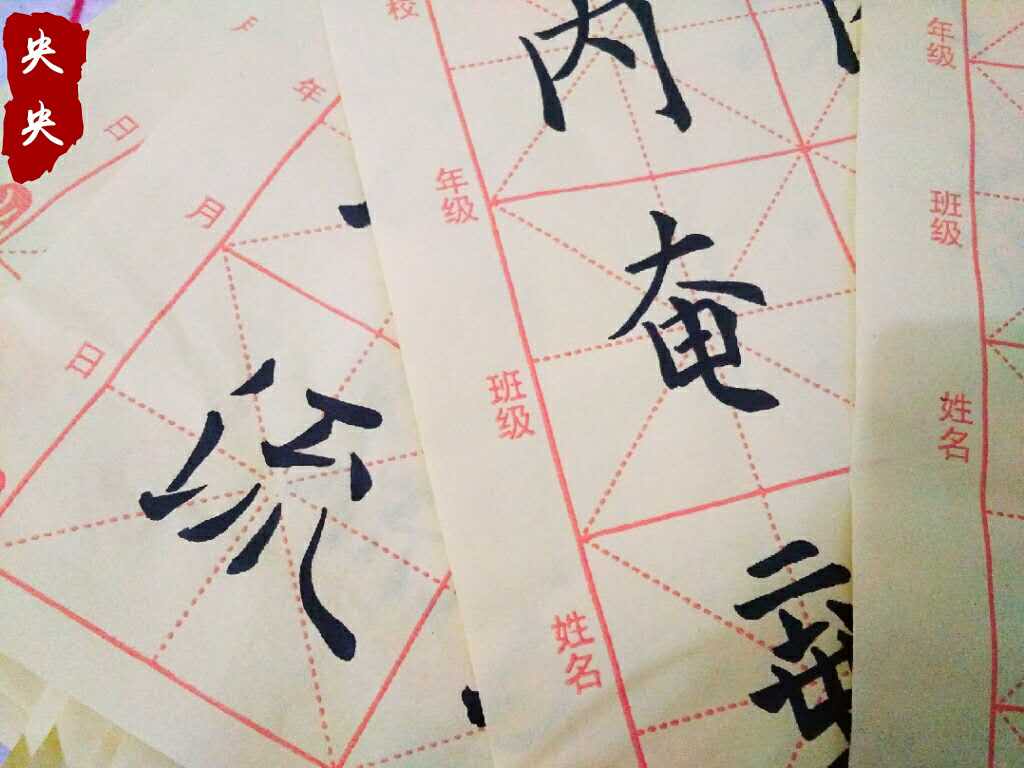 央
央
年
月
日
日
校
年级
班级
姓名
内
奄
年级
班级
姓名